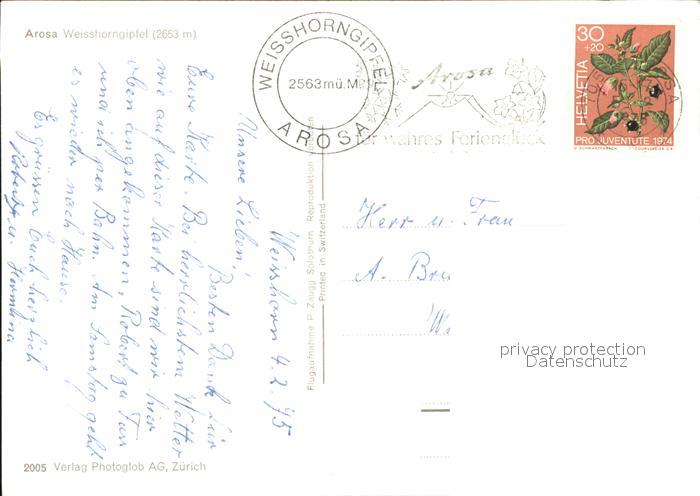 Arosa Weisshorngipfel (2653 m)
WEISSHORNGIPFEL
2563 mü.M.
AROSA
Arosa
wahres Ferienglück
30
+20
HELVETIA
PRO JUVENTUTE 1974
Weisshorn 4.2.75
Unsere Lieben!
Besten Dank für
Eure Karte. Bei herrlichstem Wetter
wie auf dieser Karte sind wir hier
oben angekommen, Robert zu Fuss
und ich per Bahn. Am Samstag geht
es wieder nach Hause.
Es grüssen Euch herzlich
Robert u. Hermina
Flugaufnahme P. Zaugg Solothurn Reproduktion verboten
Printed in Switzerland
Herr u. Frau
A. Bru
privacy protection
Datenschutz
2005 Verlag Photoglob AG, Zürich